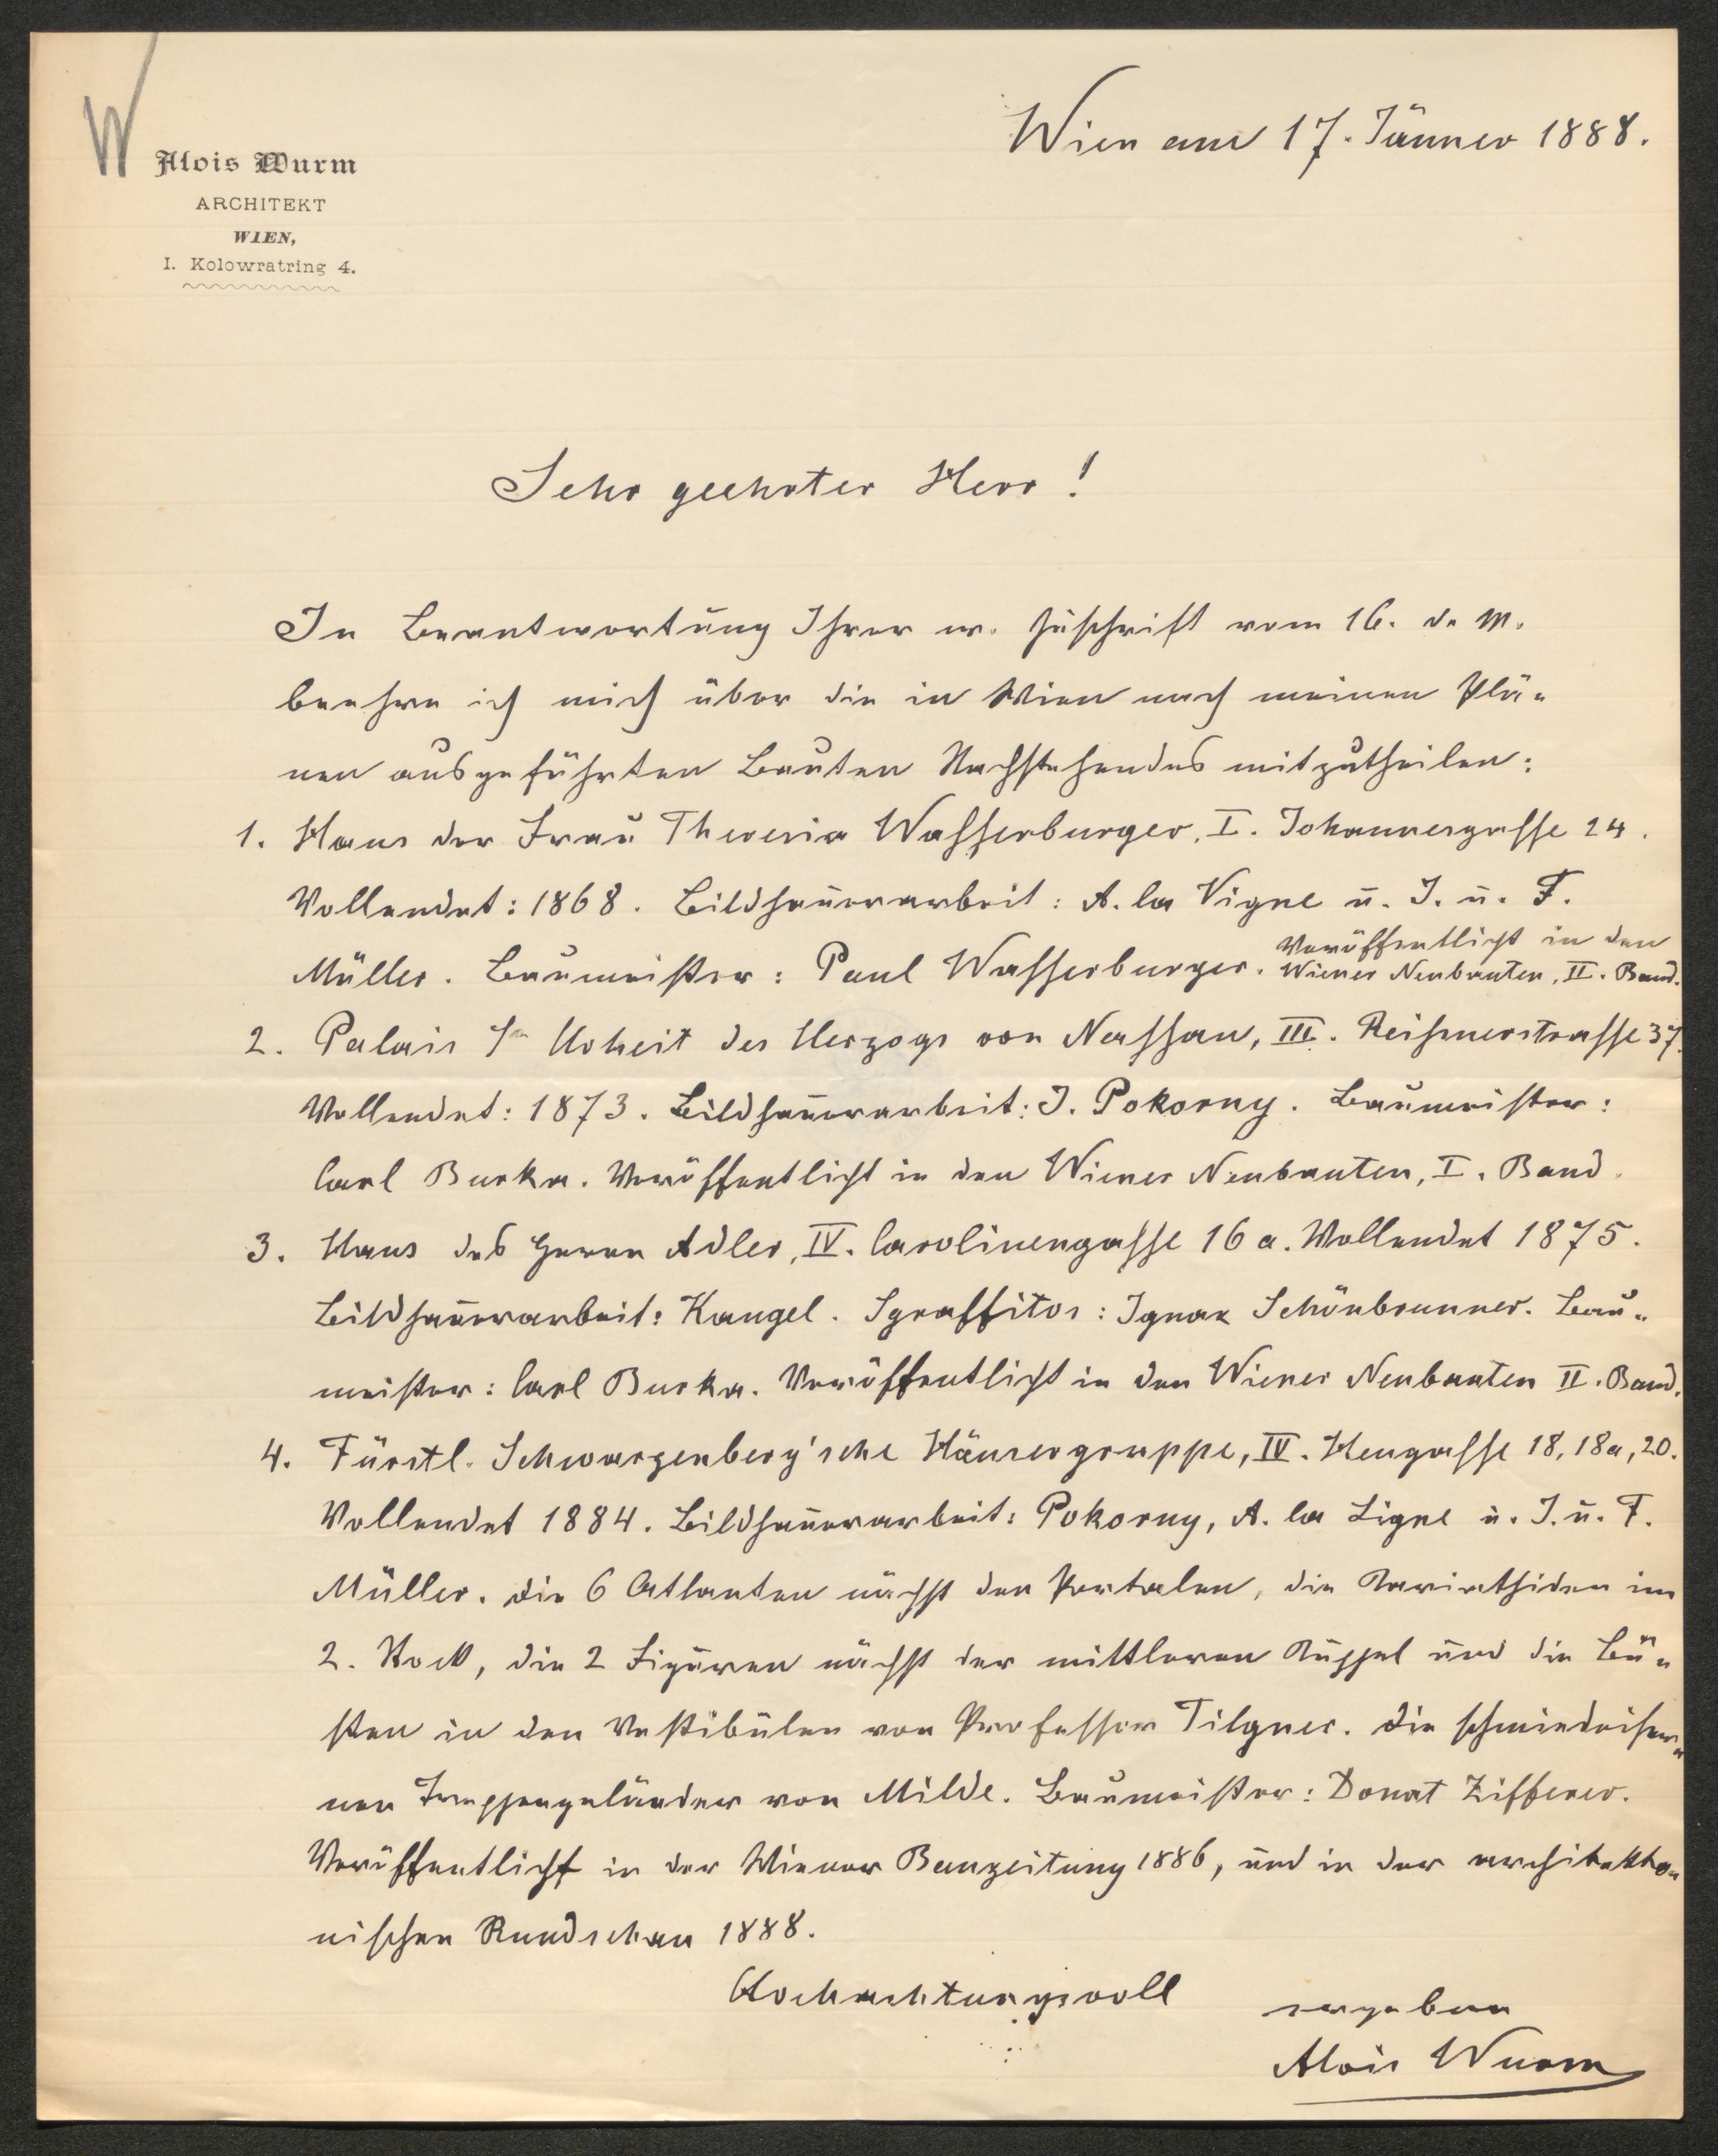 W
Alois Wurm
ARCHITEKT
WIEN,
I. Kolowratring 4.
Wien am 17. Jänner 1888.
Sehr geehrter Herr!
In Beantwortung Ihrer w. Zuschrift vom 16. d. M.
beehre ich mich über die in Wien nach meinen Plä-
nen ausgeführten Bauten Nachstehendes mitzutheilen:
1. Haus der Frau Theresia Wasserburger, I. Johannesgasse 24.
Vollendet: 1868. Bildhauerarbeit: A. la Vigne u. J. u. F.
Müller. Baumeister: Paul Wasserburger. Veröffentlicht in den
Wiener Neubauten, II. Band.
2. Palais Sr Hoheit des Herzogs von Nassau, III. Reisnerstrasse 37.
Vollendet: 1873. Bildhauerarbeit: J. Pokorny. Baumeister:
Carl Burka. Veröffentlicht in den Wiener Neubauten, I. Band.
3. Haus des Herrn Adler, IV. Carolinengasse 16 a. Vollendet 1875.
Bildhauerarbeit: Kangel. Sgraffitos: Ignaz Schönbrunner. Bau-
meister: Carl Burka. Veröffentlicht in den Wiener Neubauten II. Band.
4. Fürstl. Schwarzenberg'sche Häusergruppe, IV. Heugasse 18, 18a, 20.
Vollendet 1884. Bildhauerarbeit: Pokorny, A. la Ligne u. J. u. F.
Müller. Die 6 Atlanten nächst den Portalen, die Kariathiden im
2. Stock, die 2 Figuren nächst der mittleren Kuppel und die Bü-
sten in den Vestibülen von Professor Tilgner. Die schmiedeiser-
nen Treppengeländer von Milde. Baumeister: Donat Zifferer.
Veröffentlicht in der Wiener Bauzeitung 1886, und in der architekto-
nischen Rundschau 1888.
Hochachtungsvoll
ergeben
Alois Wurm